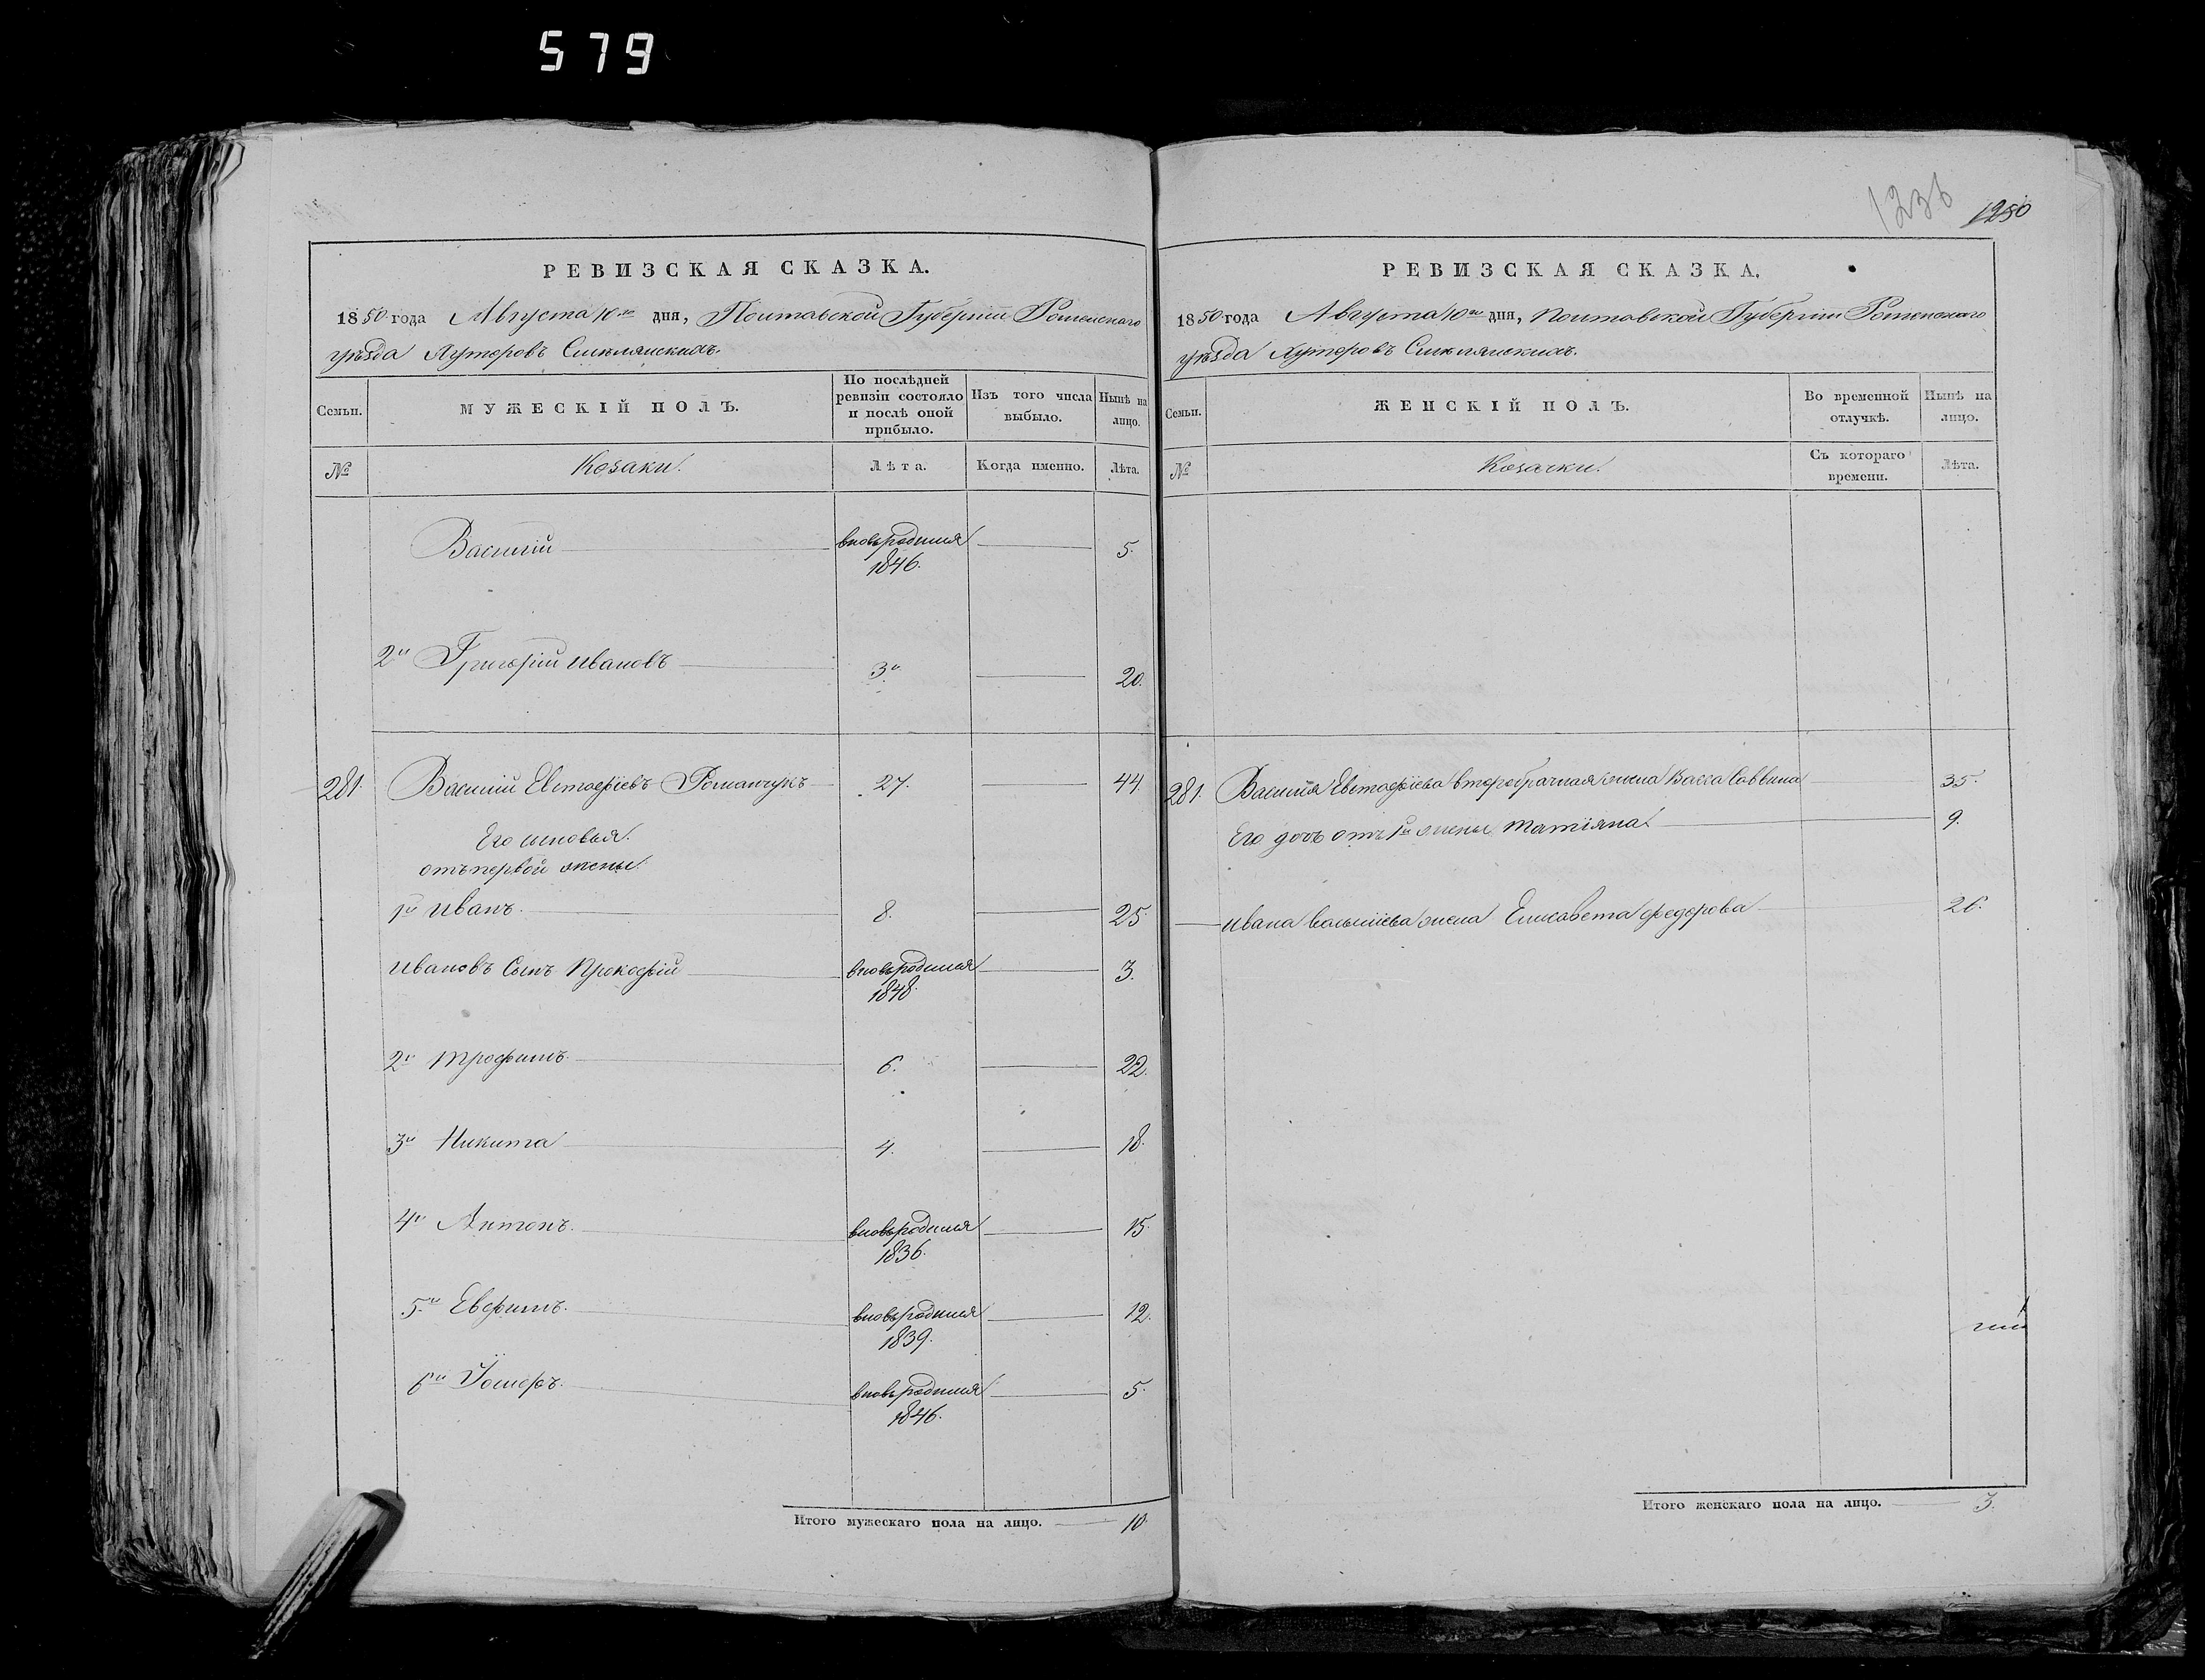 579
РЕВИЗСКАЯ СКАЗКА.
1850 года Августа 10го дня, Полтавской Губерніи Роменскаго
уѣзда Хуторовъ Смѣлянскихъ.
Семьи.
МУЖЕСКІЙ ПОЛЪ.
По послѣдней ревизіи состояло и послѣ оной прибыло.
Изъ того числа выбыло.
Нынѣ на лицо.
№
Козаки.
Лѣта.
Когда именно.
Лѣта.
Василій вновьродился 1846. 5.
2й Григорій Ивановъ 3и 20.
281. Василій Евстафіевъ Романчукъ 27. 44.
Его сыновья.
отъ первой жены.
1й Иванъ. 8. 25.
Ивановъ Сынъ Прокофій вновьродился 1848. 3.
2й Трофимъ. 6. 22.
3й Никита 4. 18.
4й Антонъ. вновьродился 1836. 15.
5й Евфимъ. вновьродился 1839. 12.
6й Іосифъ. вновьродился 1846. 5.
Итого мужескаго пола на лицо. 10.
1236 1250
РЕВИЗСКАЯ СКАЗКА.
1850 года Августа 10го дня, Полтавской Губерніи Роменскаго
уѣзда Хуторовъ Смѣлянскихъ.
Семьи.
ЖЕНСКІЙ ПОЛЪ.
Во временной отлучкѣ.
Нынѣ на лицо.
№
Козачки.
Съ котораго времени.
Лѣта.
281. Василія Евстафіева второбрачная жена Васса Саввина 35.
Его дочь отъ 1й жены Татіяна 9.
Ивана Васильіева жена Елисавета Федорова 26.
Итого женскаго пола на лицо. 3.